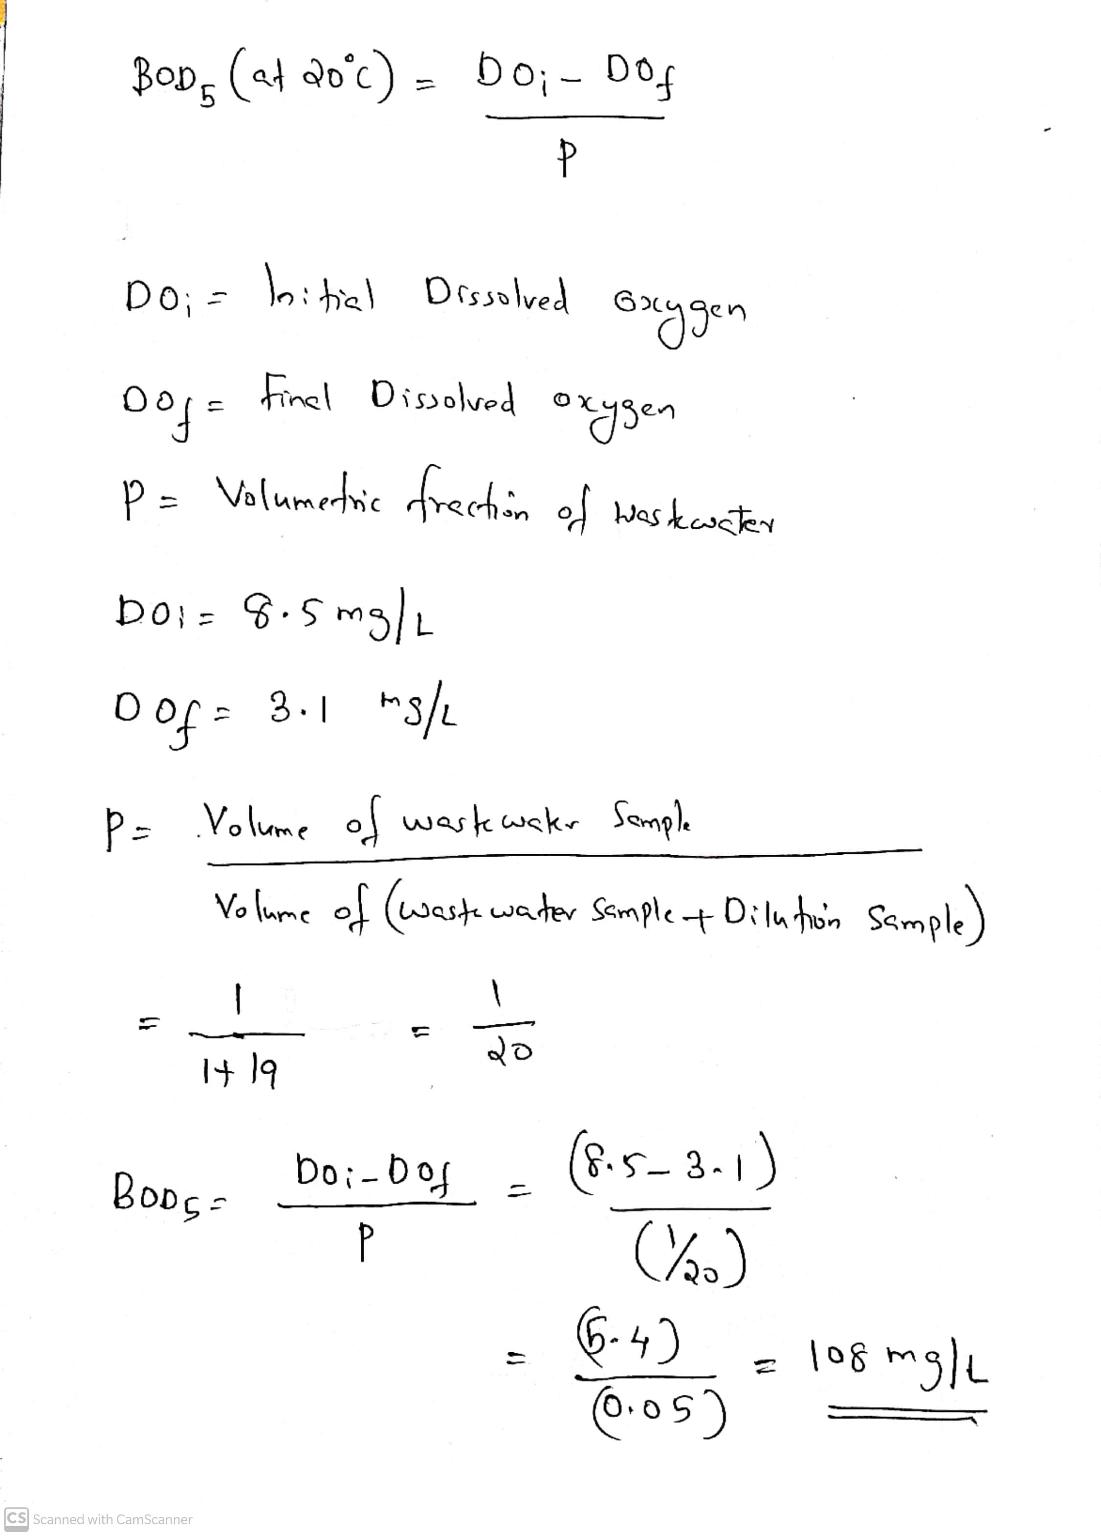 BOD₅ (at 20°C) = DOi - DOf
P
DOi = Initial Dissolved Oxygen
DOf = Final Dissolved oxygen
P = Volumetric fraction of wastewater
DOi = 8.5 mg/L
DOf = 3.1 mg/L
P = Volume of wastewater Sample
Volume of (wastewater sample + Dilution Sample)
= 1 = 1
1+19 20
BOD₅ = DOi - DOf = (8.5 - 3.1)
P (1/20)
= (5.4) = 108 mg/L
(0.05)
CS Scanned with CamScanner